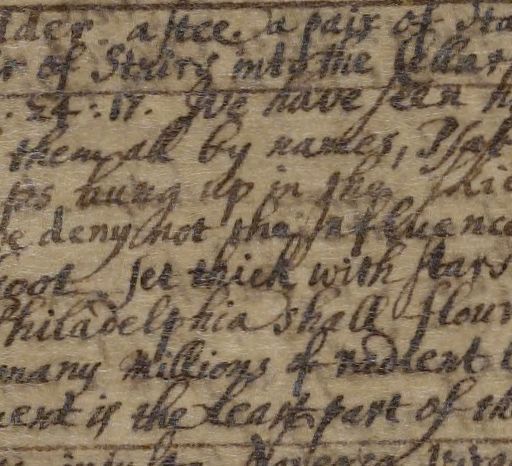 lder. a stee. a pair of Sta
r of Stairs into the Cellar
. 24 : 17. We have seen h
them all by names, Psal
ps hung up in the Skie
e deny not the influence
foot set thick with stars
Philadelphia shall flour
many millions of radient
ent is the least part of th
into